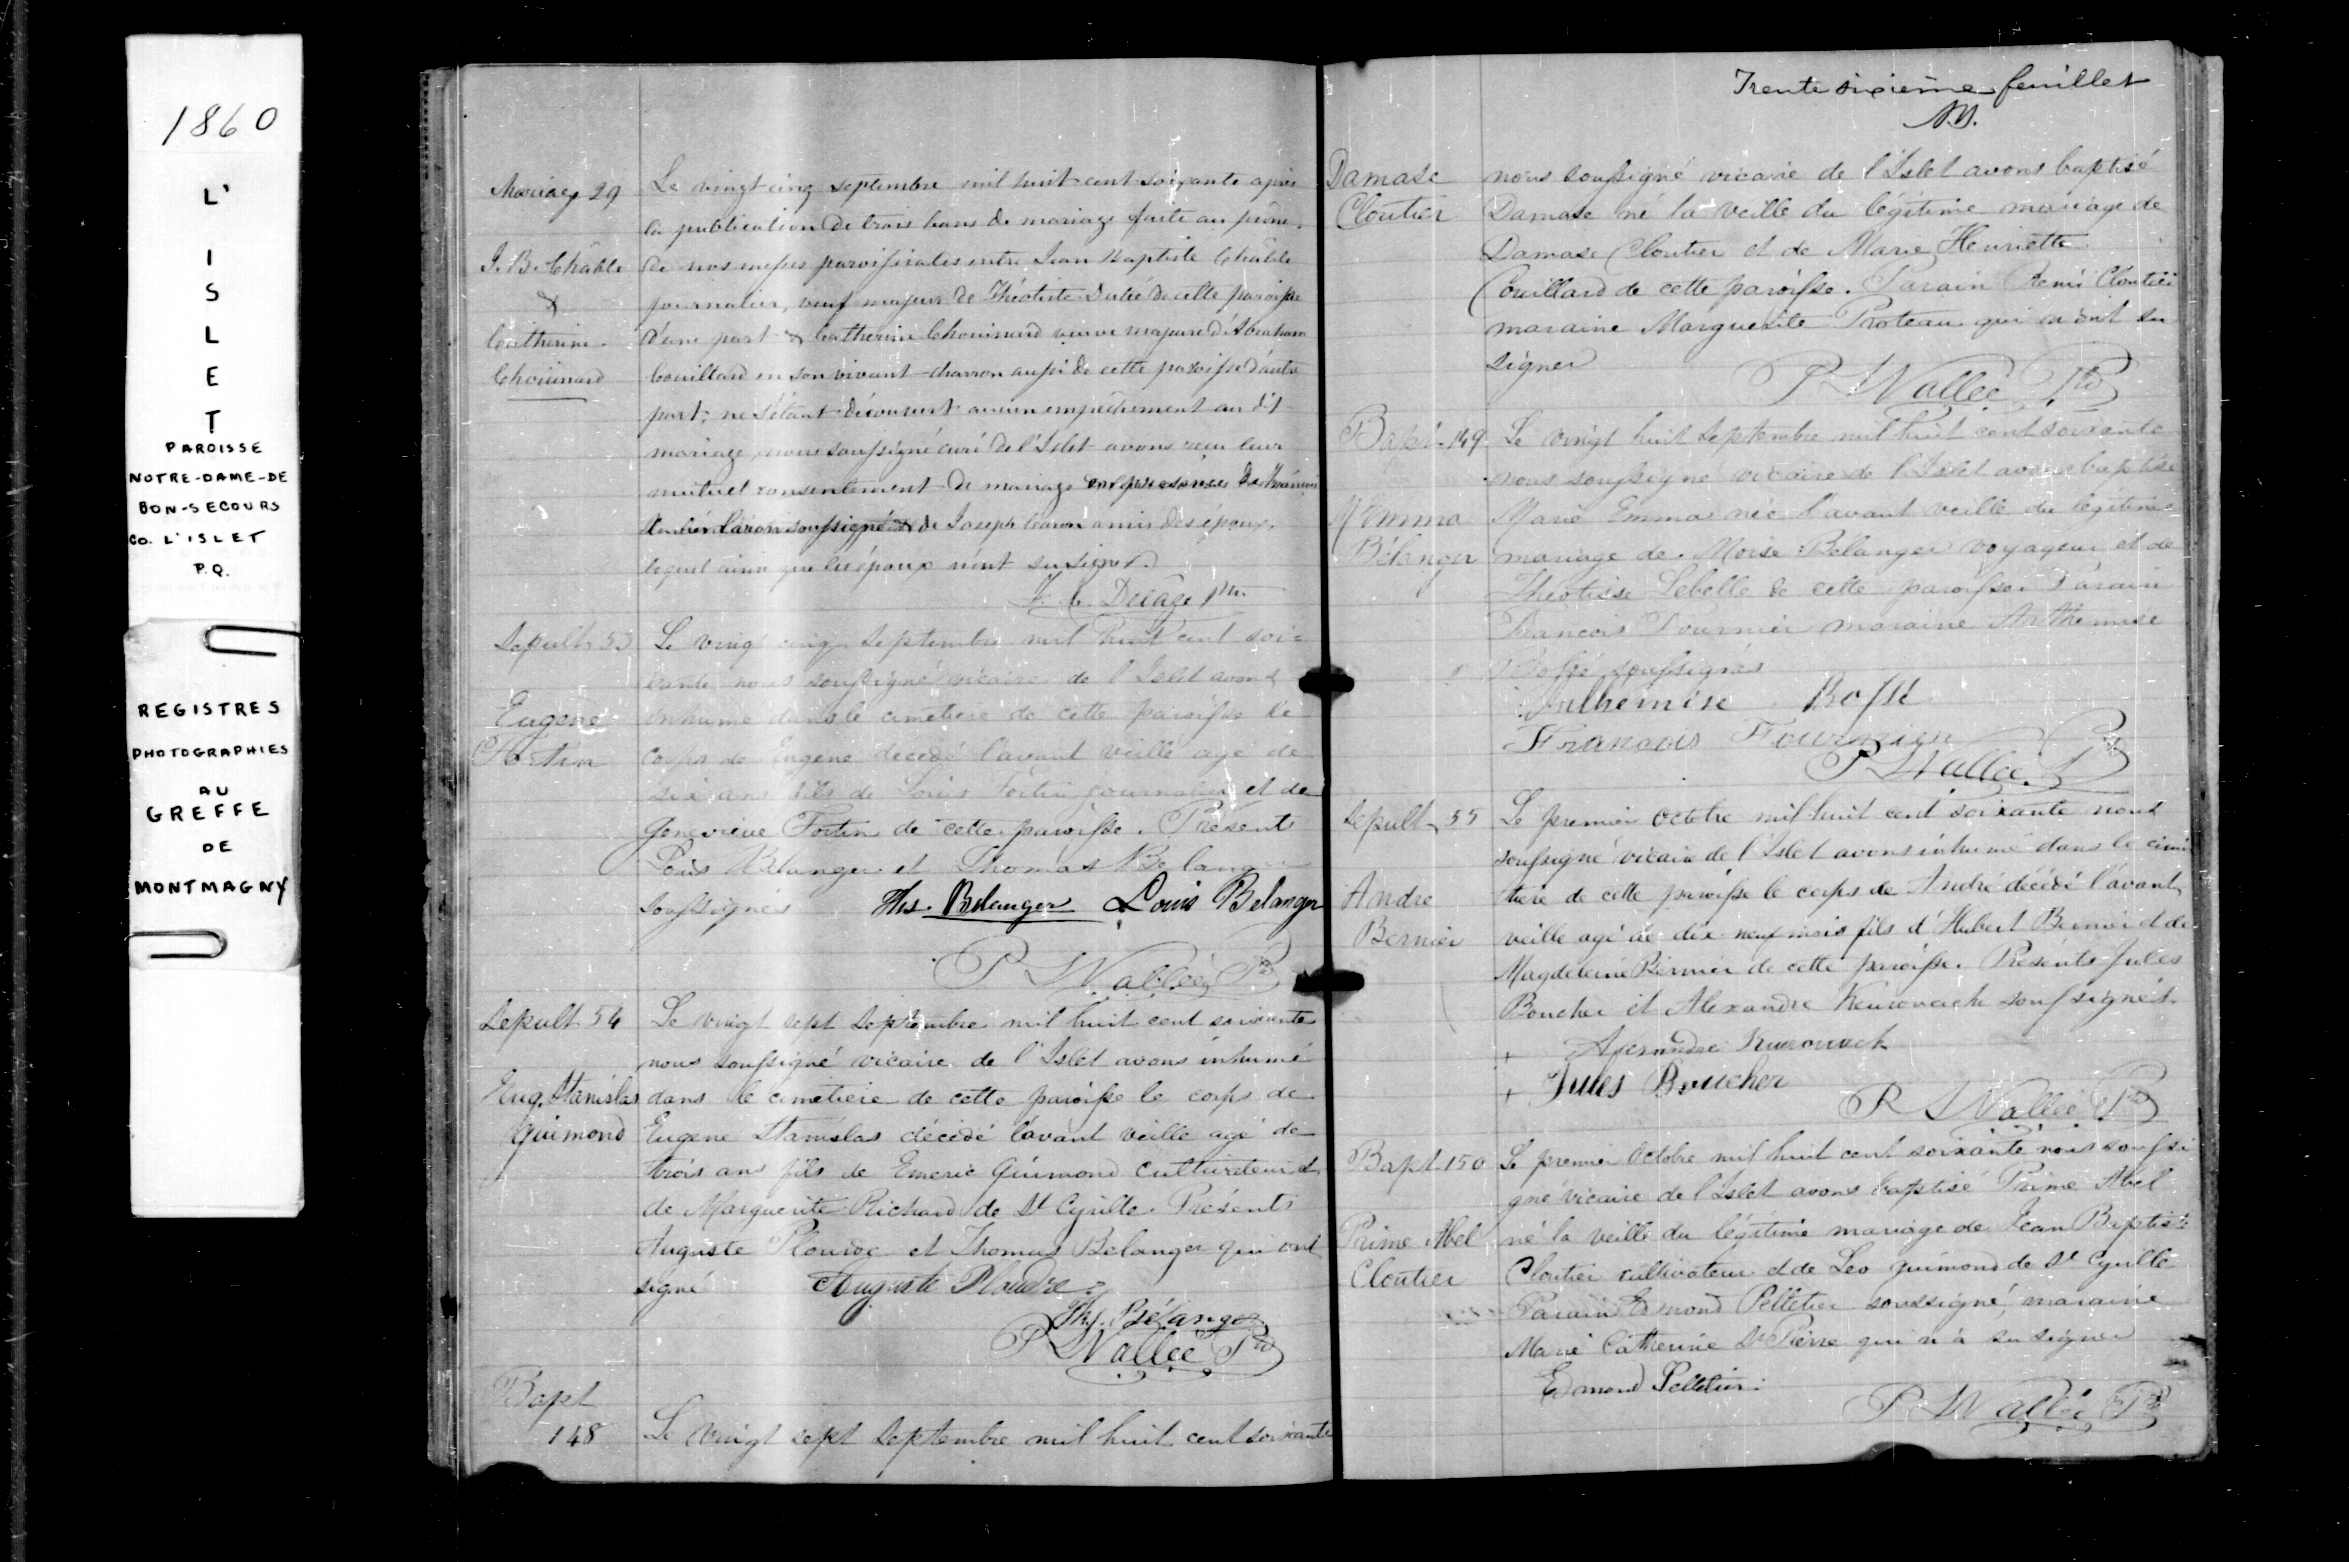 1860
L'
I
S
L
E
T
PAROISSE
NOTRE-DAME-DE
BON-SECOURS
CO. L'ISLET
P.Q.
REGISTRES
PHOTOGRAPHIES
AU
GREFFE
DE
MONTMAGNY
Mariag 29
J. B. Châble
&
Catherine
Chouinard
Le vingt cinq septembre mil huit cent soixante après
la publication de trois bans de mariage faite au prône
de nos messes paroissiales entre Jean Baptiste Châble
journalier, veuf majeur de Théotiste Dubé de cette paroisse
d'une part & Catherine Chouinard veuve majeure d'Abraham
Couillard en son vivant charron aussi de cette paroisse d'autre
part; ne s'étant découvert aucun empêchement au dit
mariage, nous soussigné curé de l'Islet avons reçu leur
mutuel consentement de mariage en présence de
Caron soussigné & de Joseph Caron amis des époux,
lequel ainsi que les époux n'ont su signer.
Delâge Ptre
Sepult 53
Eugene
Fortin
Le vingt cinq Septembre mil huit cent soi=
xante nous soussigné vicaire de l'Islet avons
inhumé dans le cimetiere de cette paroisse le
corps de Eugene décédé l'avant veille agé de
six ans fils de Louis Fortin journalier et de
Genevieve Fortin de cette paroisse. Présents
Louis Bélanger et Thomas Bélanger
soussignés Ths. Belanger Louis Belanger
P Vallée Ptre
Sepult 54
Eug. Stanislas
Guimond
Le vingt sept Septembre mil huit cent soixante
nous soussigné vicaire de l'Islet avons inhumé
dans le cimetiere de cette paroisse le corps de
Eugene Stanislas décédé l'avant veille agé de
trois ans fils de Emeric Guimond cultivateur et
de Marguerite Richard de St Cyrille. Présents
Auguste Plourde et Thomas Belanger qui ont
signé Auguste Plourde
Ths. Bélanger
P Vallée Ptre
Bapt
148
Le vingt sept Septembre mil huit cent soixante
Trente sixième feuillet
Damase
Cloutier
nous soussigné vicaire de l'Islet avons baptisé
Damase né la veille du légitime mariage de
Damase Cloutier et de Marie Henriette
Couillard de cette paroisse. Parain Remi Cloutier
maraine Marguerite Proteau qui n'ont su
signer
P Vallée Ptre
Bapt 149
M Emma
Bélanger
Le vingt huit Septembre mil huit cent soixante
nous soussigné vicaire de l'Islet avons baptisé
Marie Emma née l'avant veille du légitime
mariage de Moise Bélanger voyageur et de
Théotisse Lebelle de cette paroisse. Parain
Francois Fournier maraine Arthemise
soussignés
François Fournier
P Vallée Ptre
Sepult 55
Andre
Bernier
Le premier octobre mil huit cent soixante nous
soussigné vicaire de l'Islet avons inhumé dans le cime
tiere de cette paroisse le corps de André décédé l'avant
veille agé de dix neuf mois fils d'Hubert Bernier et de
Magdeleine Bernier de cette paroisse. Présents Jules
Boucher et Alexandre Keurouack soussignés.
+ Alexandre Kurouack
+ Jules Boucher
P Vallée Ptre
Bapt 150
Prime Abel
Cloutier
Le premier Octobre mil huit cent soixante nous soussi
gné vicaire de l'Islet avons baptisé Prime Abel
né la veille du légitime mariage de Jean Baptiste
Cloutier cultivateur et de Leo Guimond de St Cyrille
Parain Edmond Pelletier soussigné, maraine
Marie Catherine St Pierre qui n'a su signer
Edmond Pelletier
P Vallée Ptre